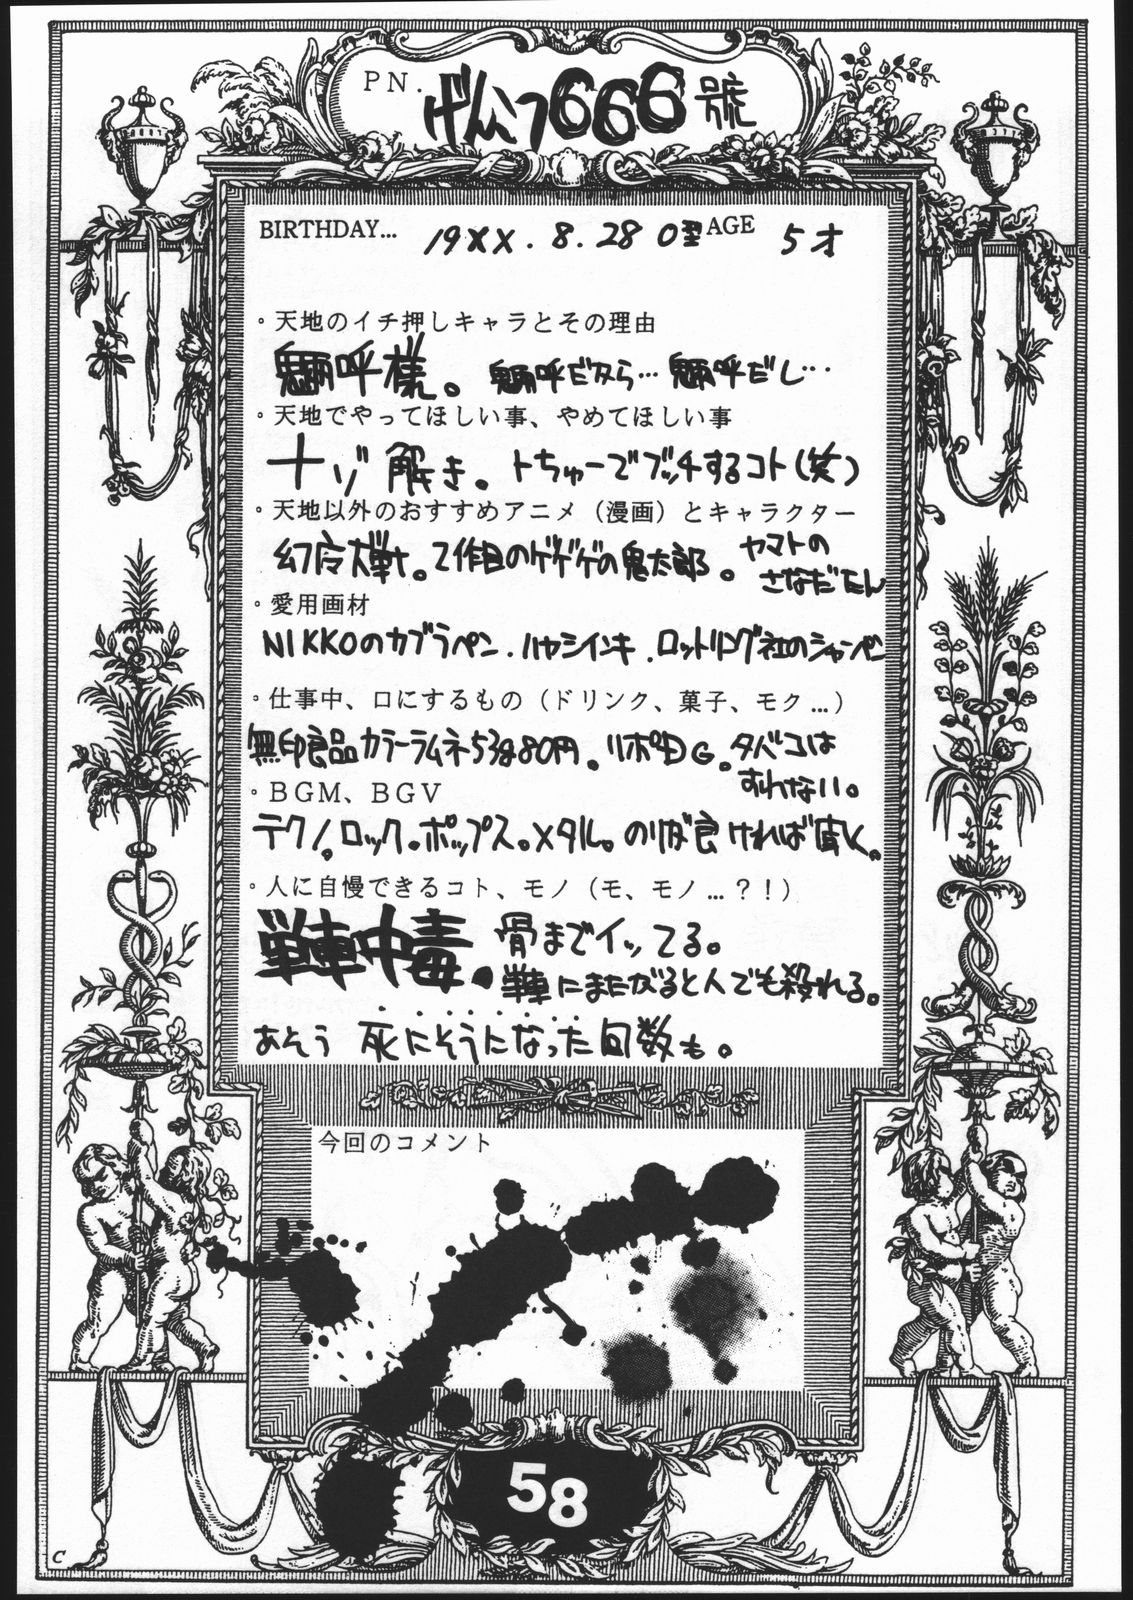 PN. げんこつ666號
BIRTHDAY... 19XX.8.28 O型 AGE 5才
・天地のイチ押しキャラとその理由
魎呼様。魎呼だから…魎呼だし…
・天地でやってほしい事、やめてほしい事
ナゾ解き。トちゅーでブッチするコト(笑)
・天地以外のおすすめアニメ（漫画）とキャラクター
幻魔大戦。2作目のゲゲゲの鬼太郎。ヤマトの
さなださん
・愛用画材
NIKKOのカブラペン.ハヤシインキ.ロットリング社のシャーペン
・仕事中、口にするもの（ドリンク、菓子、モク…）
無印良品カラーラムネ53g80円。リポDG。タバコは
すわない。
・BGM、BGV
テクノ。ロック。ポップス。メタル。のりが良ければ
・人に自慢できるコト、モノ（モ、モノ…？！）
単車中毒。骨までイッてる。
単車にまたがると人でも殺れる。
あそう 死にそうになった回数も。
今回のコメント
…
58
C